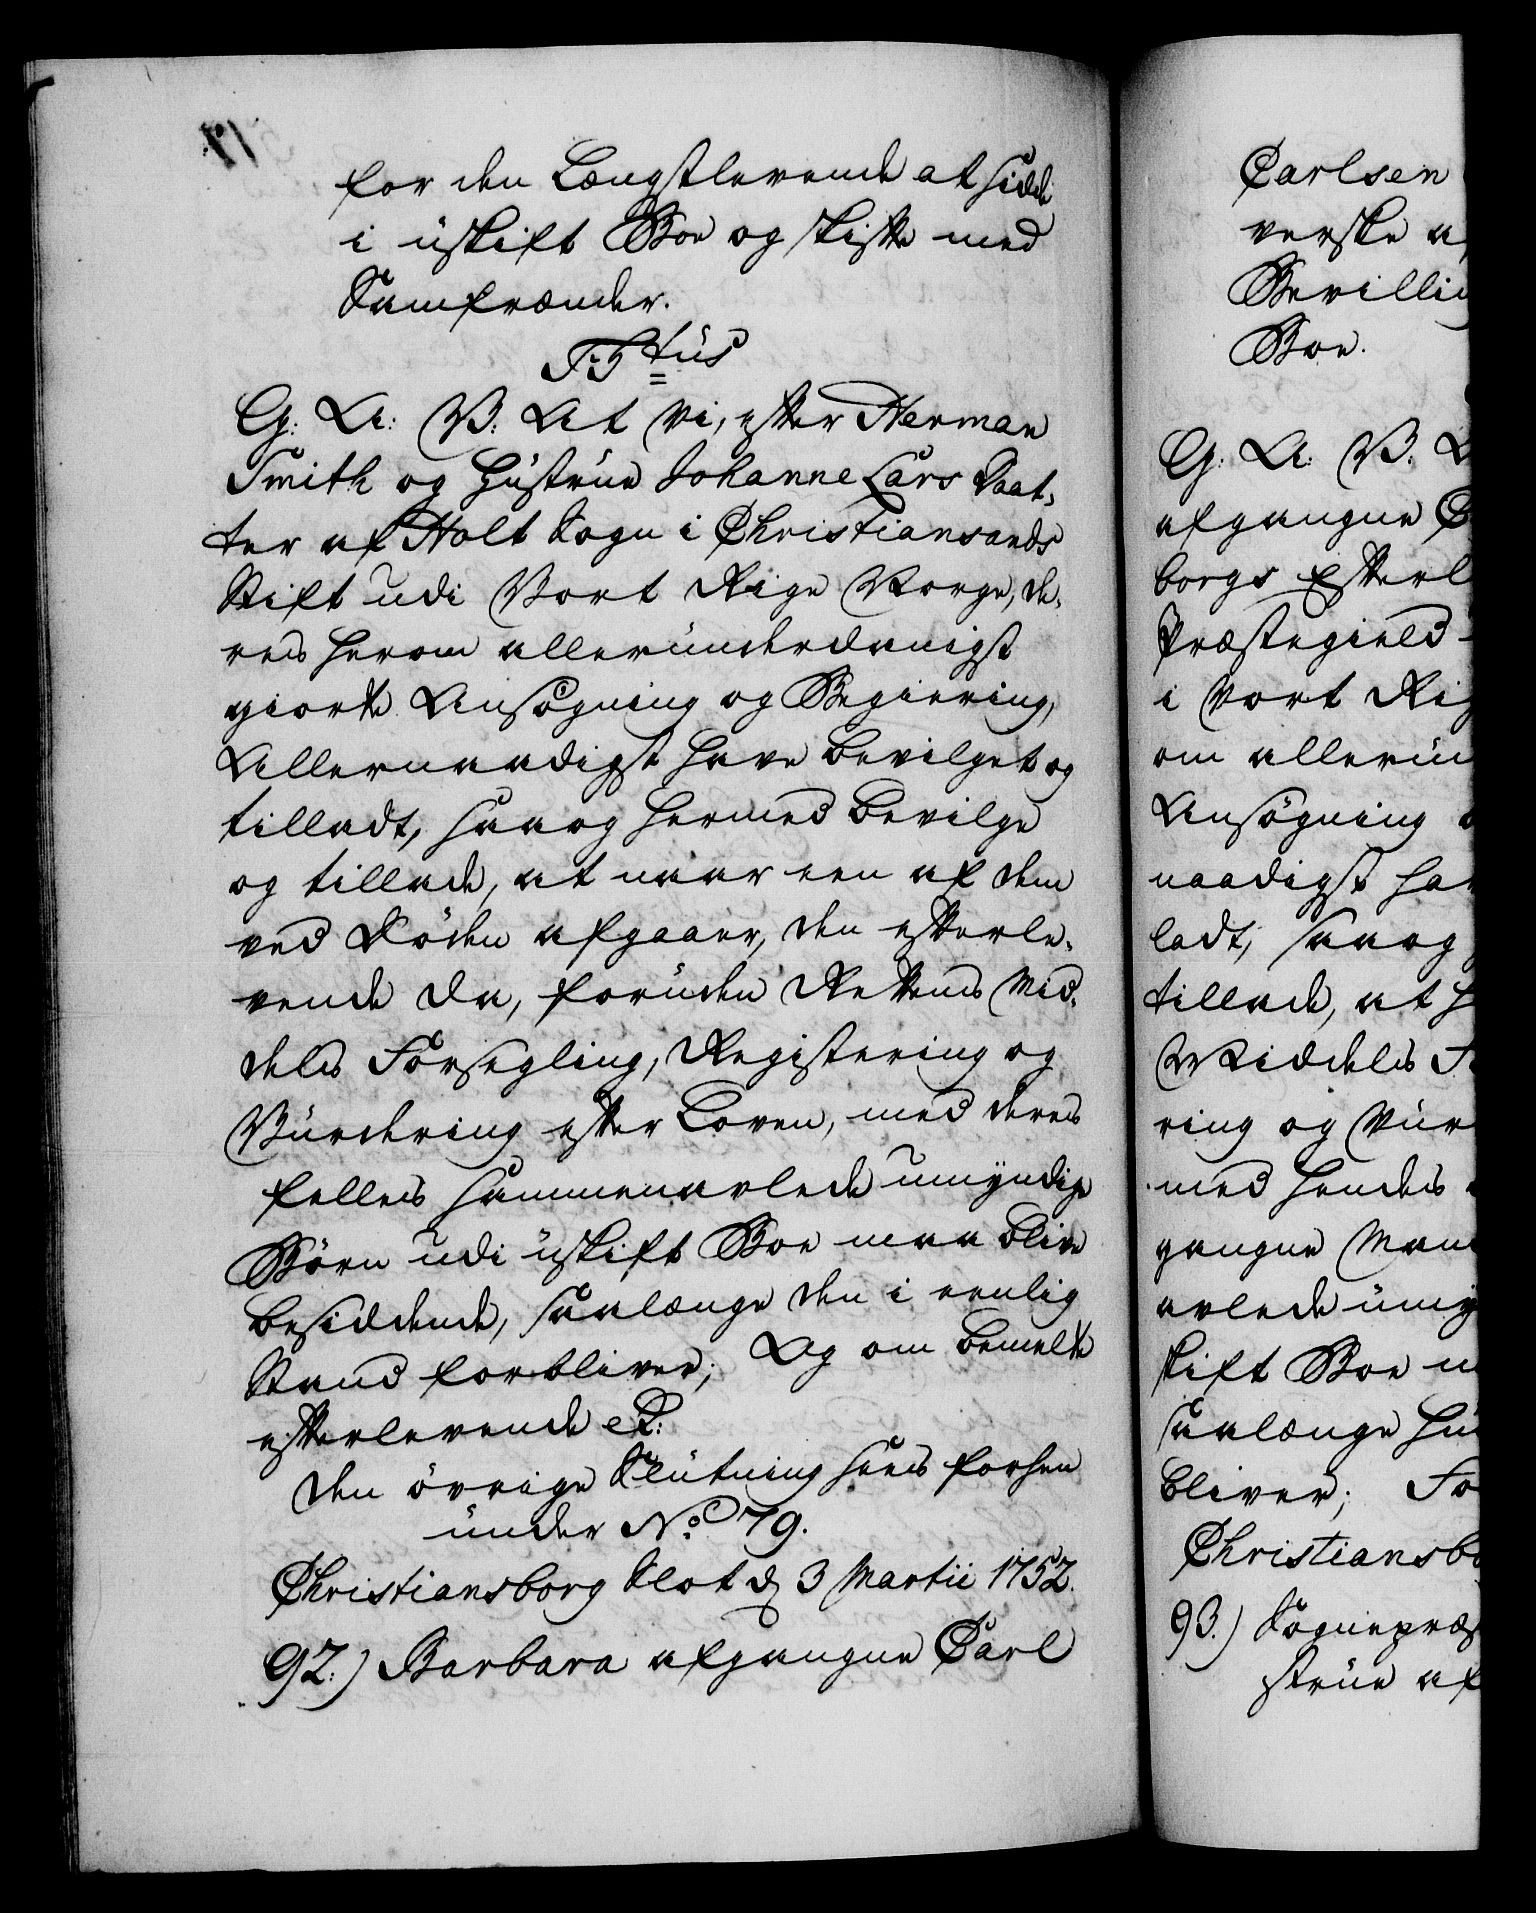 for den Længstlevende at sidde
i uskift Boe og skifte med
Samfrænder.
F. 5tus
G: A: V: At Vi, efter Herman
Smith og Hustrue Johanne Lars Daat,,
ter af Holt Sogn i Christiansands
Stift udi Vort Rige Norge, de,,
res herom allerunderdanigst
giorte Ansøgning og Begiering,
Allernaadigst have bevilget og
tilladt, saa og hermed bevilge
og tillade, at naar een af dem
ved Døden afgaaer, den efterle,,
vende da, foruden Rettens Mid,,
dels Forsegling, Registering og
Vurdering efter Loven, med deres
felles sammenavlede umyndige
Børn udi uskift Boe maa blive
besiddende, saalænge den i eenlig
Stand forbliver; Og om bemelte
efterlevende etc:
den øvrige Slutning sees forhen
under No. 79.
Christiansborg Slot d 3 Martii 1752.
92.) Barbara afgangne Carl
Carlsen
verske
Bevillin
Boe.
G: A: V:
afgangne
borgs Efterl
Præstegield
i Vort Rig
om allerun
Ansøgning
naadigst hav
ladt, saa og
tillade, at
Middels Fo
ring og Vur
med hendes
gangne Man
avlede umy
skift Boe m
saalænge hun
bliver; Fo
Christiansbo
93.) Sognepræs
strue af